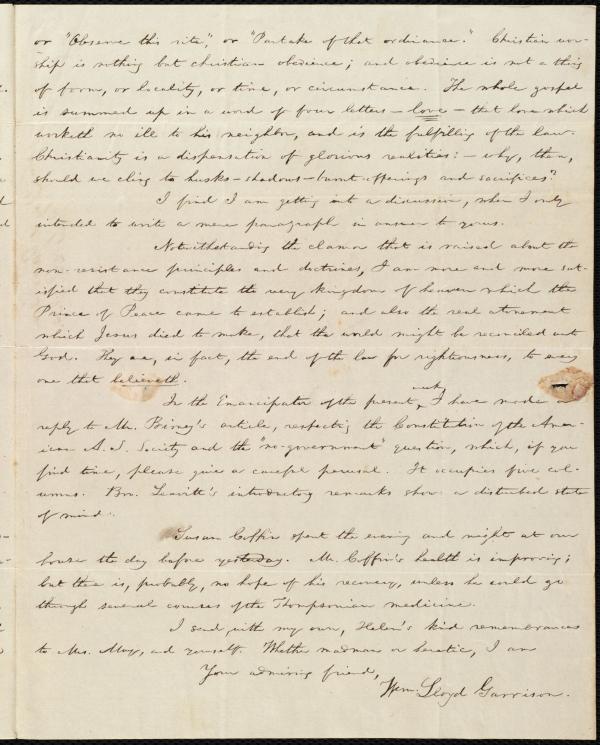 or "Observe this rite," or "Partake of that ordinance." Christian wor-
ship is nothing but christian obedience; and obedience is not a thing
of form, or locality, or time, or circumstance. The whole gospel
is summed up in a word of four letters – love – that love which
worketh no ill to his neighbor, and is the fulfilling of the law.
Christianity is a dispensation of glorious realities: – why, then,
should we cling to husks – shadows – burnt offerings and sacrifices?
I find I am getting into a discussion, when I only
intended to write a mere paragraph in answer to yours.
Notwithstanding the clamor that is raised about the
non-resistance principles and doctrines, I am more and more sat-
isfied that they constitute the very kingdom of heaven which the
Prince of Peace came to establish; and also the real atonement
which Jesus died to make, that the world might be reconciled unto
God. They are, in fact, the end of the law for righteousness, to every
one that believeth.
In the Emancipator of the present week, I have made a
reply to Mr. Birney's article, respecting the Constitution of the Amer-
ican A. S. Society and the "no-government" question, which, if you
find time, please give a careful perusal. It occupies five col-
umns. Bro. Leavitt's introductory remarks show a disturbed state
of mind.
Susan Coffin spent the evening and night at our
house the day before yesterday. Mr. Coffin's health is improving;
but there is, probably, no hope of his recovery, unless he could go
through several courses of the Thompsonian medicine.
I send, with my own, Helen's kind remembrances
to Mrs. May, and yourself. Whether madman or heretic, I am
Your admiring friend,
Wm. Lloyd Garrison.